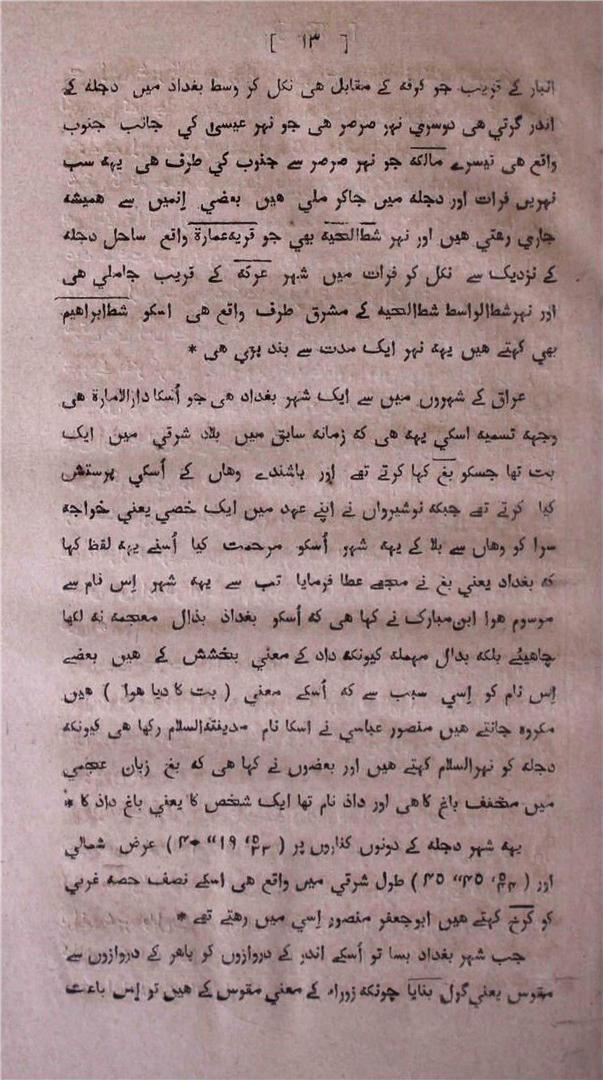 [ ١٣ ]
انبار کے قریب جو کوفہ کے مقابل هی نکل کر وسط بغداد میں دجلہ کے
اندر گرتی هی دوسري نہر صرصر هی جو نہر عیسیٰ کي جانب جنوب
واقع هی تیسرے مالکہ جو نہر صرصر سے جنوب کي طرف هی یہہ سب
نہریں فرات اور دجلہ میں جاکر ملي هیں بعضي اِنمیں سے همیشہ
جاري رهتي هیں اور نہر شط‌الحیہ بھي جو قریہ‌عمارة واقع ساحل دجلہ
کے نزدیک سے نکل کر فرات میں شہر عرکہ کے قریب جاملي هی
اور نہر شط‌الواسط شط‌الحیہ کے مشرق طرف واقع هی اسکو شط‌ابراهیم
بھي کہتے هیں یہہ نہر ایک مدت سے بند پڑي هی *
عراق کے شہروں میں سے ایک شہر بغداد هی جو اُسکا دارالامارة هی
وجہہ تسمیہ اسکي یہہ هی کہ زمانہ سابق میں بلاد شرقي میں ایک
بت تھا جسکو بغ کہا کرتے تھے اور باشندے وهاں کے اُسکي پرستش
کیا کرتے تھے جبکہ نوشیرواں نے اپنے عہد میں ایک خصي یعني خواجہ
سرا کو وهاں سے بلا کے یہہ شہر اُسکو مرحمت کیا اُسنے یہہ لفظ کہا
کہ بغداد یعني بغ نے مجھے عطا فرمایا تب سے یہہ شہر اِس نام سے
موسوم هوا ابن‌مبارک نے کہا هی کہ اُسکو بغداذ بذال معجمہ نہ لکھا
چاهیئے بلکہ بدال مہملہ کیونکہ داد کے معني بخشش کے هیں بعضے
اِس نام کو اِسي سبب سے کہ اُسکے معني ( بت کا دیا هوا ) هیں
مکروہ جانتے هیں منصور عباسي نے اسکا نام مدینتہ‌السلام رکھا هی کیونکہ
دجلہ کو نہرالسلام کہتے هیں اور بعضوں نے کہا هی کہ بغ زبان عجمي
میں مخفف باغ کا هی اور داد نام تھا ایک شخص کا یعني باغ داد کا *
یہہ شہر دجلہ کے دونوں کناروں پر عرض شمالي
اور طول شرقي میں واقع هی اسکے نصف حصہ غربي
کو کرخ کہتے هیں ابوجعفر منصور اِسي میں رهتے تھے *
جب شہر بغداد بسا تو اُسکے اندر کے دروازوں کو باهر کے دروازوں سے
مقوس یعني گول بنایا چونکہ زوراء کے معني مقوس کے هیں تو اِس باعث